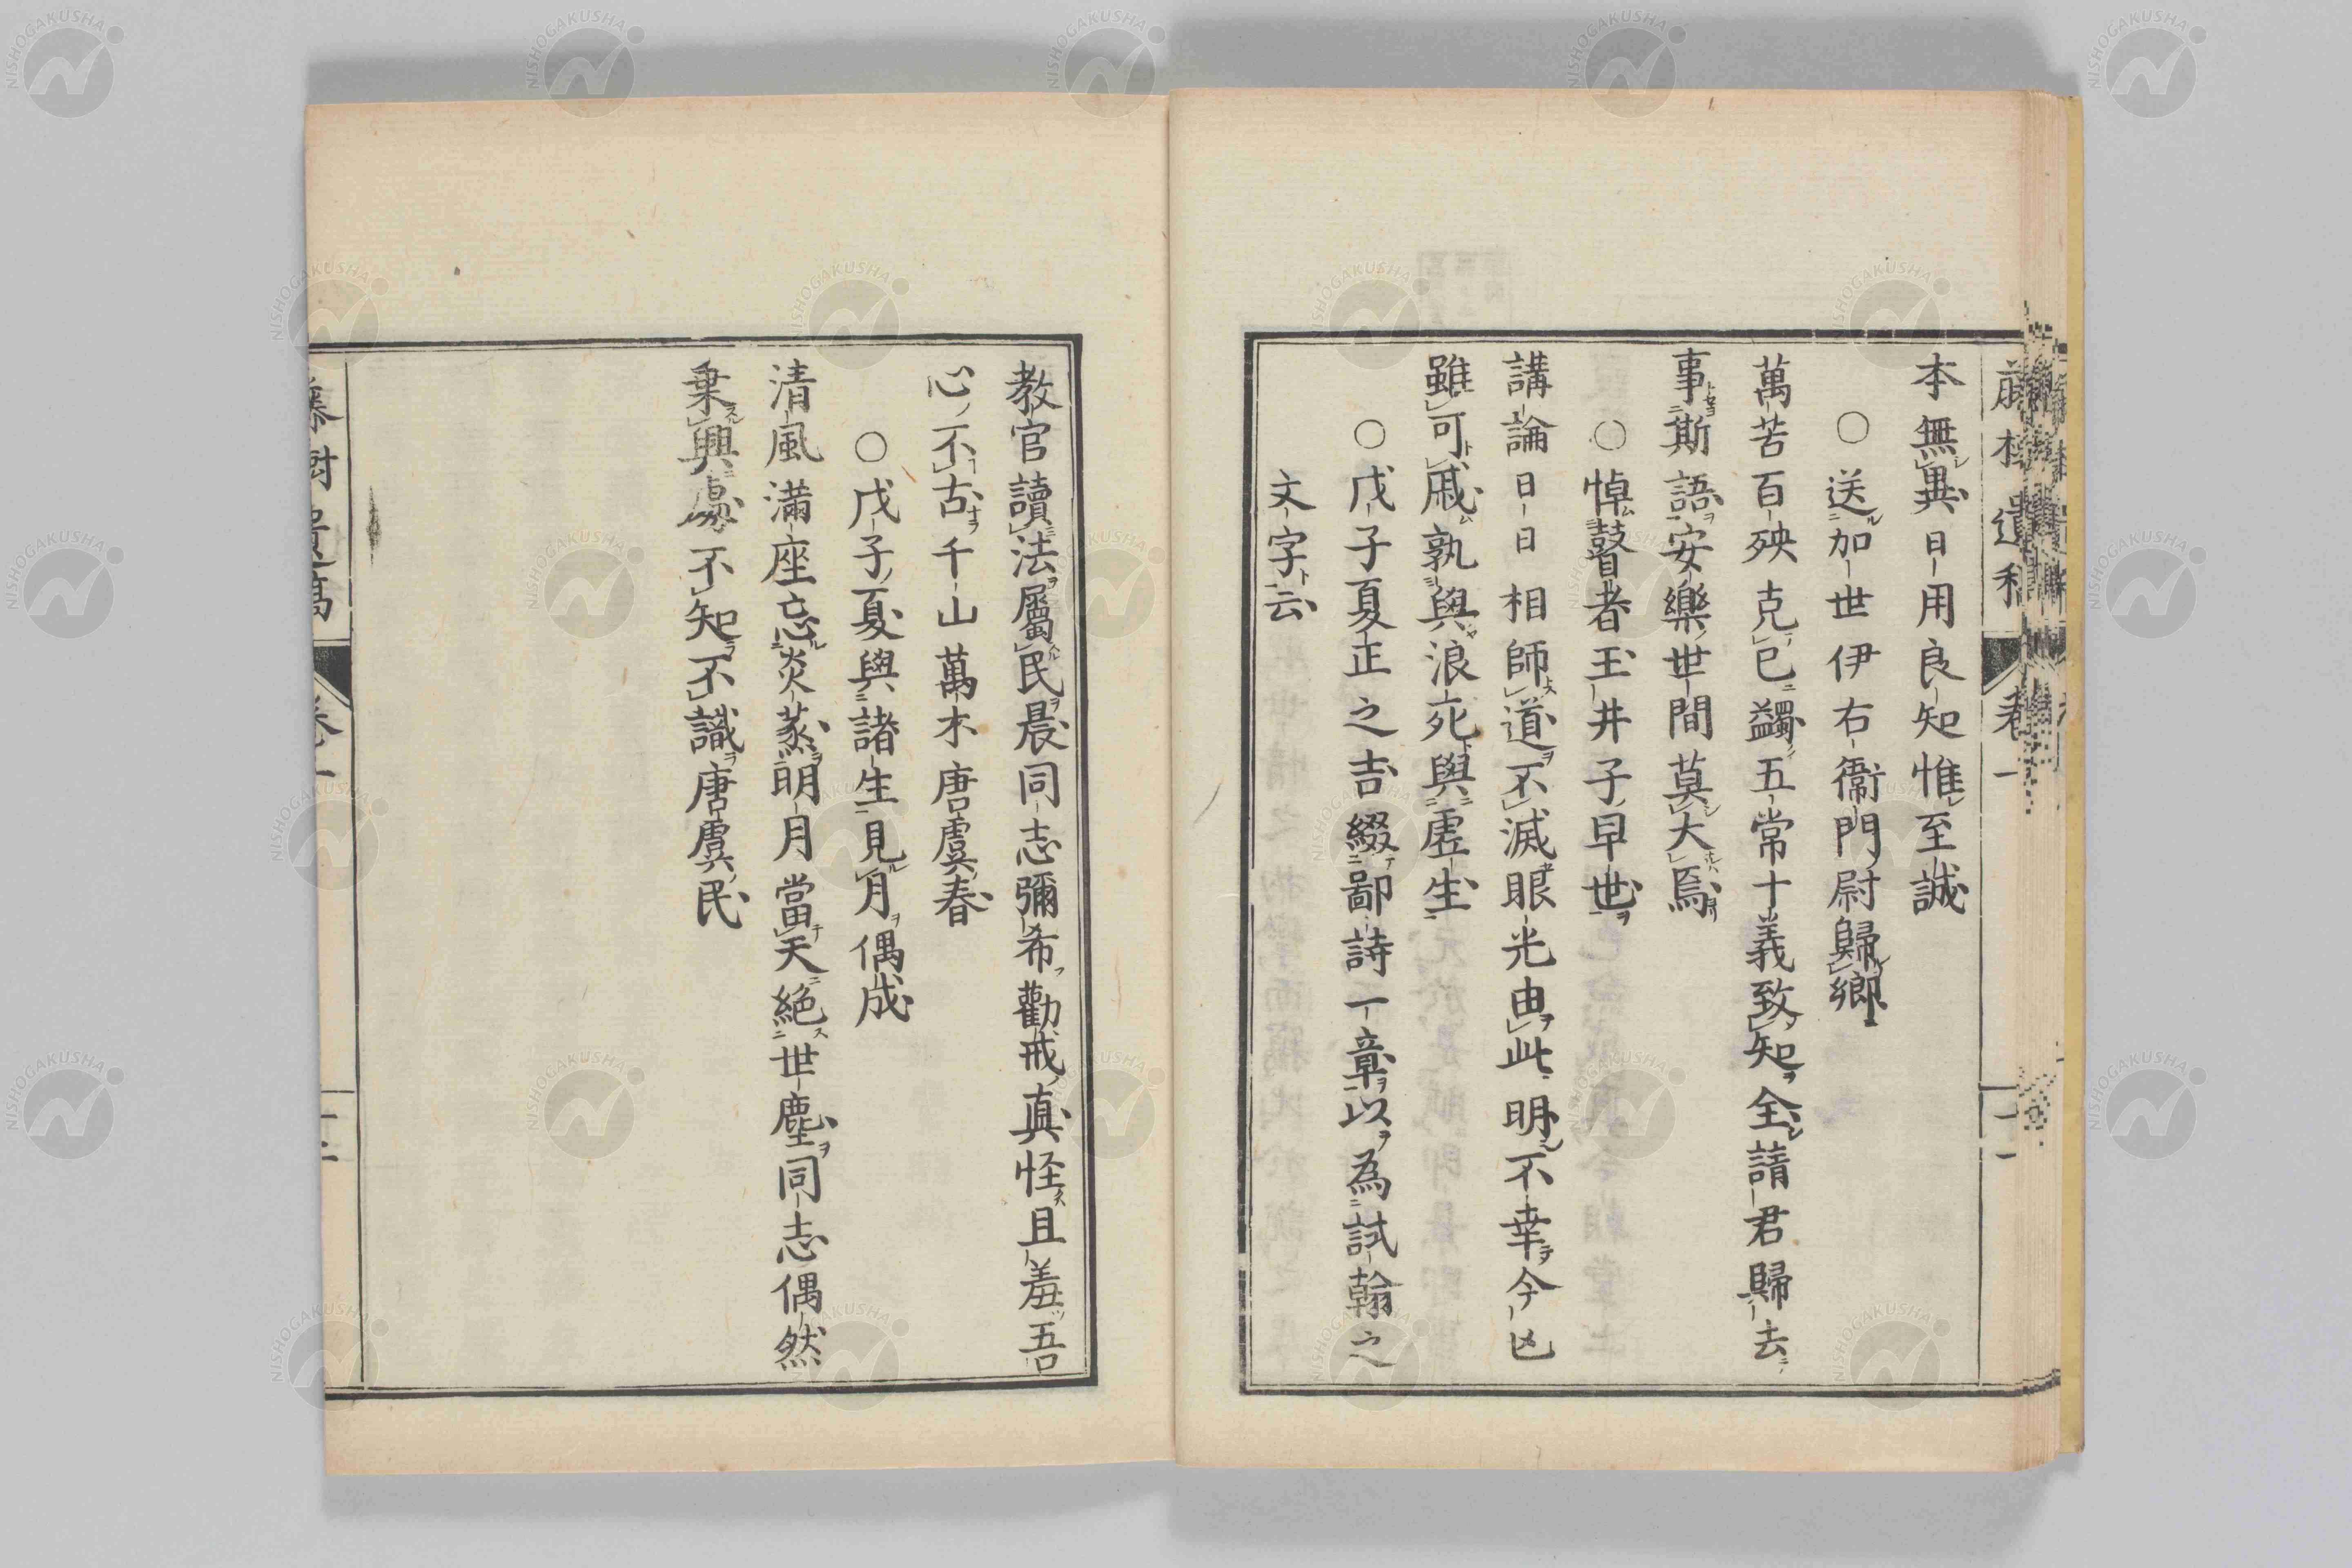 本無異日用良知惟至誠
○送加世伊右衞門尉歸鄉
萬苦百殃克已蠲五常十義致知全請君歸去
事斯語安樂世間莫大焉
○悼瞽者玉井子早世
講論日日相師道不滅眼光由此明不幸今凶
雖可戚孰與浪死與虛生
○戊子夏正之吉綴鄙詩一章以為試翰之
文字云
教官讀法屬民晨同志彌希勸戒真怪且羞吾
心不古千山萬木唐虞春
○戊子夏與諸生見月偶成
清風滿座忘炎蒸明月當天絕世塵同志偶然
乗興處不知不識唐虞民
卷一
十二
卷一
十一
NISHOGAKUSHA